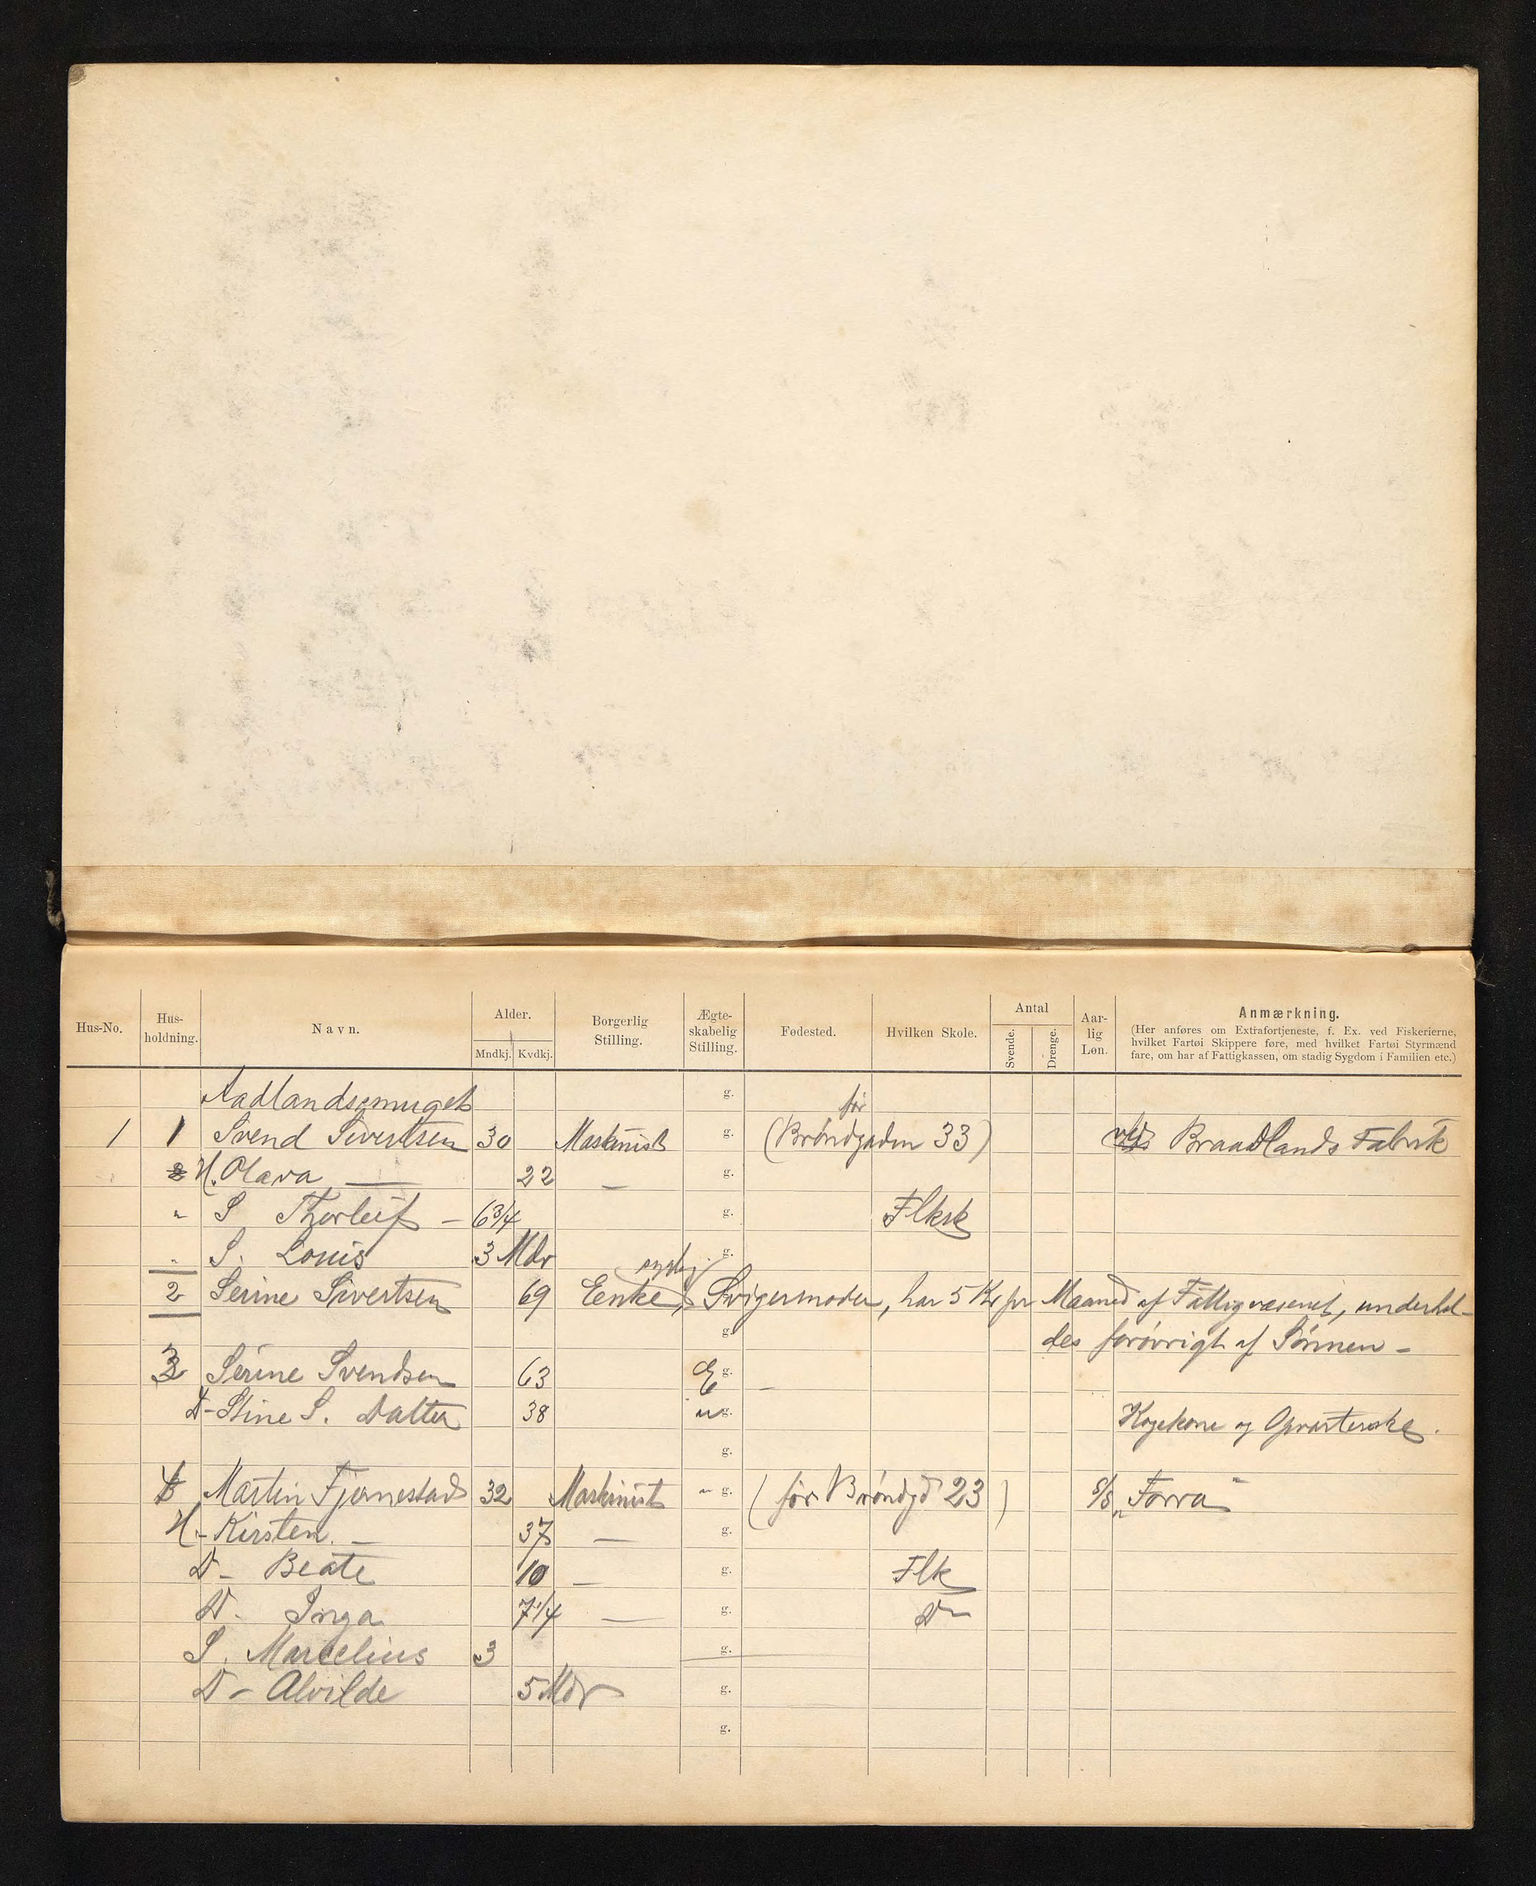 Hus-No. Hus-holdning. Navn. Alder. Mndkj. Kvdkj. Borgerlig Stilling. Ægte-skabelig Stilling. Fødested. Hvilken Skole. Antal Svende. Drenge. Aar-lig Løn. Anmærkning.
(Her anføres om Extrafortjeneste, f. Ex. ved Fiskerierne,
hvilket Fartøi Skippere føre, med hvilket Fartøi Styrmænd
fare, om har af Fattigkassen, om stadig Sygdom i Familien etc.)
Aadlandssmuget g. før
1 1 Svend Sivertsen 30 Maskinist g. (Brøndgaden 33) Braadlands Fabrik
2 H. Olava — 22 — g.
" S Thorleif — 6 3/4 g. Flksk
" S. Louis 3 Mdr g.
sygelig
2 Serine Sivertsen 69 Enke, Svigermoder, har 5 Kr pr Maaned af Fattigvæsenet, underhol-
g. des forøvrigt af Sønnen –
3 Serine Svendsen 63 E g. –
D- Stine S. Datter 38 u g. Kogekone og Opvarterske.
g.
4 Martin Fjermestad 32 Maskinist " g. (før Brøndgd 23) S/S „Forra"
H- Kirsten — 37 — g.
D- Beate 10 — g. Flk
D- Inga 7 1/4 — g. D—
S. Marcelius 3 g.
D- Alvilde 5 Mdr g.
g.